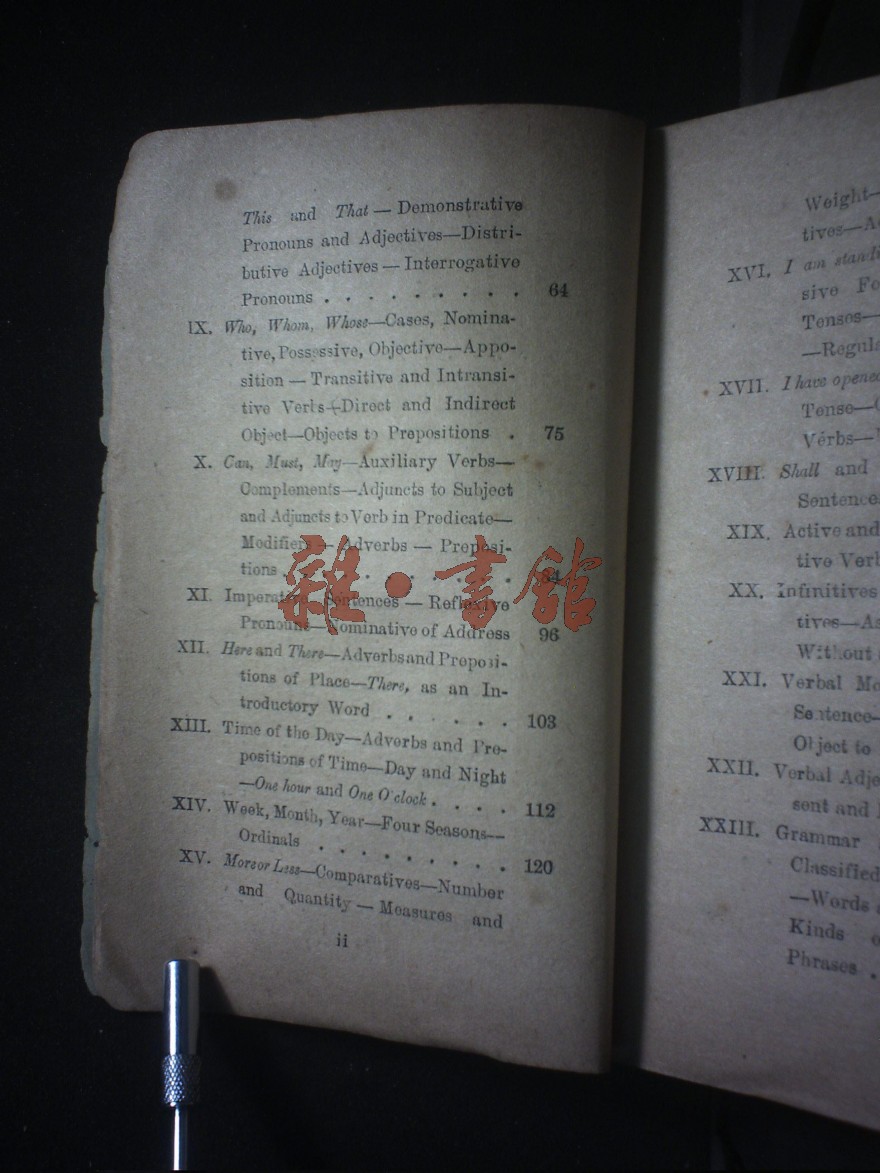 This and That — Demonstrative
Pronouns and Adjectives—Distri-
butive Adjectives — Interrogative
Pronouns . . . . . . . . . 64
IX. Who, Whom, Whose—Cases, Nomina-
tive, Possessive, Objective—Appo-
sition — Transitive and Intransi-
tive Verbs—Direct and Indirect
Object—Objects to Prepositions . 75
X. Can, Must, May—Auxiliary Verbs—
Complements—Adjuncts to Subject
and Adjuncts to Verb in Predicate—
Modifiers — Adverbs — Preposi-
tions . . . . . . . . 84
XI. Imperative Sentences — Reflexive
Pronouns—Nominative of Address 96
XII. Here and There—Adverbs and Preposi-
tions of Place—There, as an In-
troductory Word . . . . . . 103
XIII. Time of the Day—Adverbs and Pre-
positions of Time—Day and Night
—One hour and One O'clock . . . . 112
XIV. Week, Month, Year—Four Seasons—
Ordinals . . . . . . . . 120
XV. More or Less—Comparatives—Number
and Quantity — Measures and
ii
雜·書館
Weight—
tives—
XVI. I am
sive
Tenses—
XVII. I have opened
Tense—
Verbs—
XVIII. Shall and
Sentence
XIX. Active and
tive
XX. Infinitives
tives—
Without
XXI. Verbal
Sentence—
Object to
XXII. Verbal
sent and
XXIII. Grammar
Classified
—Words
Kinds
Phrases .